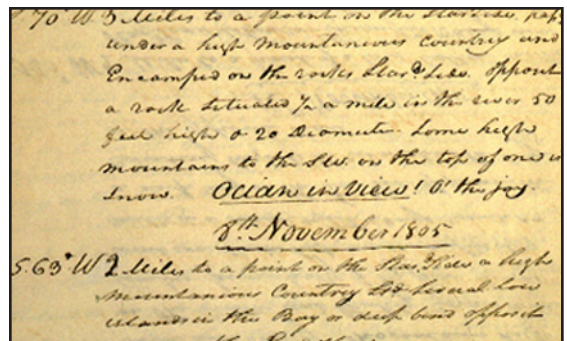 70° W 3 Miles to a point on the Stard. Side, pass
under a high mountaineous Country and
Encamped on the rocks Stard. Side. opposit
a rock Situated ½ a mile in the river 50
feet high & 20 Diamute. Some high
mountains to the S W. on the top of one is
Snow. Ocian in view! O! the joy.
8th. November 1805
S. 63° W 2 Miles to a point on the Stard. Side a high
mountanious Countrey Several low
islands in the Bay or deep bend opposit